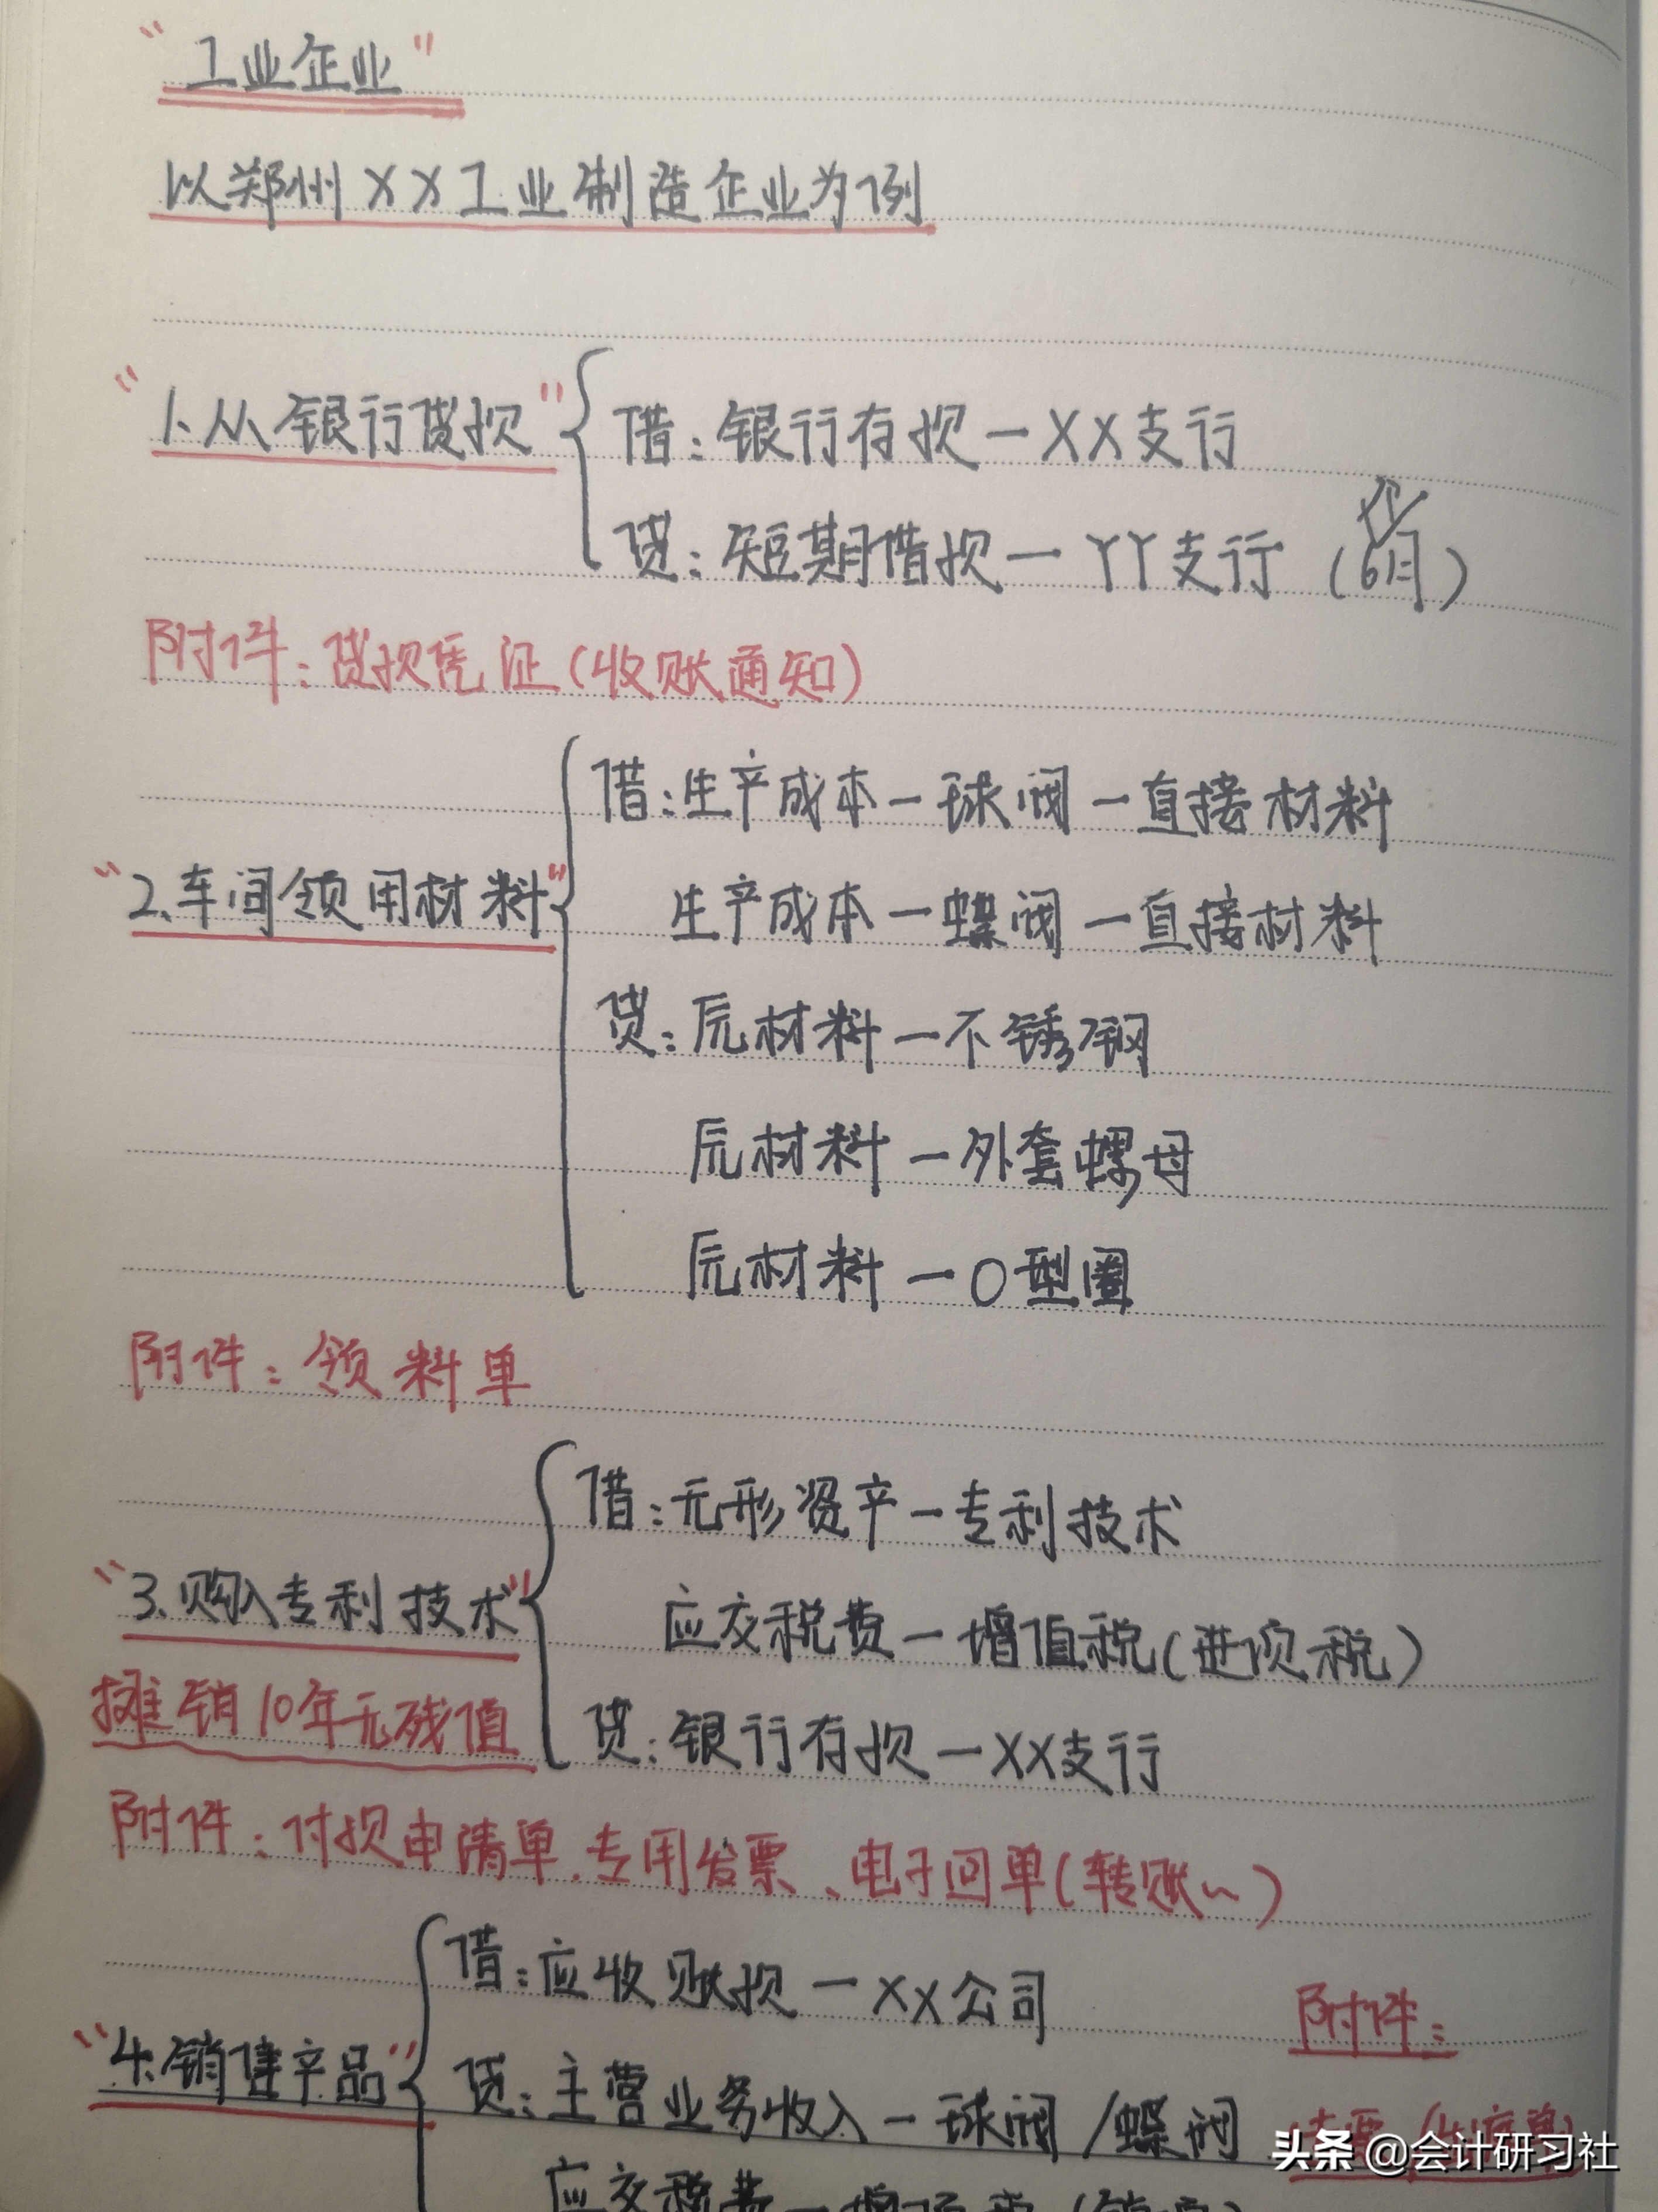 "工业企业"
以郑州XX工业制造企业为例
"1.从银行贷款"
借:银行存款一XX支行
贷:短期借款一YY支行(6个月)
附件:贷款凭证(收账通知)
"2.车间领用材料"
借:生产成本一球阀一直接材料
生产成本一蝶阀一直接材料
贷:原材料一不锈钢
原材料一外套螺母
原材料一O型圈
附件:领料单
"3.购入专利技术"
摊销10年无残值
借:无形资产一专利技术
应交税费一增值税(进项税)
贷:银行存款一XX支行
附件:付款申请单、专用发票、电子回单(转账~)
"4.销售产品"
借:应收账款一XX公司
贷:主营业务收入一球阀/蝶阀
应交税费一增
附件:
头条@会计研习社